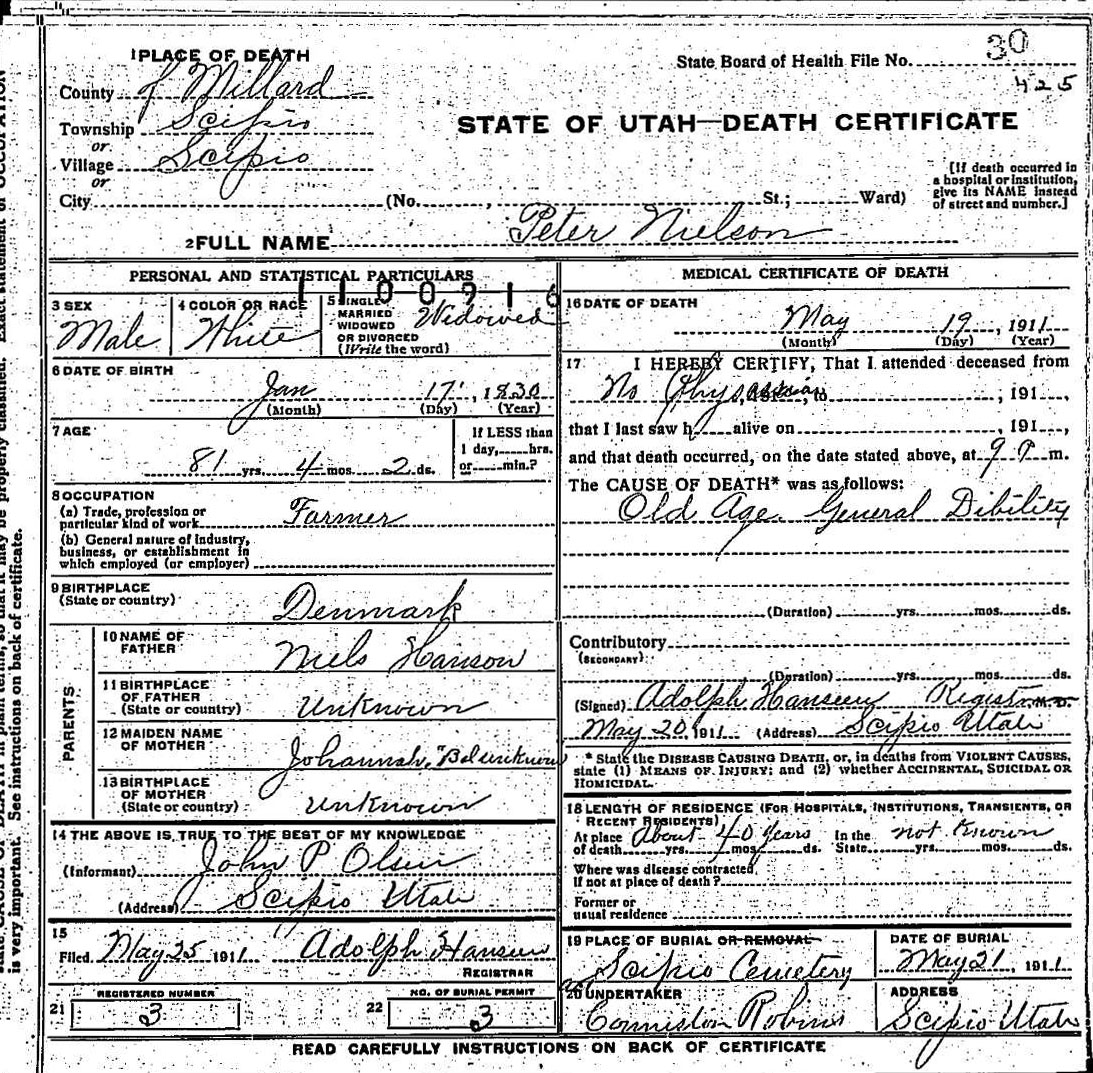 1 PLACE OF DEATH
State Board of Health File No. 30
425
County of Millard
Township Scipio
or
Village Scipio
or
City (No. , St.; Ward)
STATE OF UTAH—DEATH CERTIFICATE
[If death occurred in
a hospital or institution,
give its NAME instead
of street and number.]
2 FULL NAME Peter Nielson
PERSONAL AND STATISTICAL PARTICULARS
1100916
3 SEX
Male
4 COLOR OR RACE
White
5 SINGLE
MARRIED
WIDOWED
OR DIVORCED
(Write the word)
Widowed
6 DATE OF BIRTH
Jan 17, 1830
(Month) (Day) (Year)
7 AGE
81 yrs. 4 mos. 2 ds.
If LESS than
1 day, hrs.
or min.?
8 OCCUPATION
(a) Trade, profession or
particular kind of work Farmer
(b) General nature of industry,
business, or establishment in
which employed (or employer)
9 BIRTHPLACE
(State or country)
Denmark
PARENTS
10 NAME OF
FATHER
Niels Hanson
11 BIRTHPLACE
OF FATHER
(State or country)
Unknown
12 MAIDEN NAME
OF MOTHER
Johannah, Bal unknown
13 BIRTHPLACE
OF MOTHER
(State or country)
Unknown
14 THE ABOVE IS TRUE TO THE BEST OF MY KNOWLEDGE
(Informant) John P Olsen
(Address) Scipio Utah
15
Filed May 25 1911 Adolph Hansen
REGISTRAR
21
REGISTERED NUMBER
3
22
NO. OF BURIAL PERMIT
3
MEDICAL CERTIFICATE OF DEATH
16 DATE OF DEATH
May 19, 1911
(Month) (Day) (Year)
17 I HEREBY CERTIFY, That I attended deceased from
No Physician, to , 191 ,
that I last saw h alive on , 191 ,
and that death occurred, on the date stated above, at 9 P m.
The CAUSE OF DEATH* was as follows:
Old Age. General Dibility
(Duration) yrs. mos. ds.
Contributory
(SECONDARY)
(Duration) yrs. mos. ds.
(Signed) Adolph Hansen Registrar M.D.
May 20 1911 (Address) Scipio Utah
* State the DISEASE CAUSING DEATH, or, in deaths from VIOLENT CAUSES,
state (1) MEANS OF INJURY; and (2) whether ACCIDENTAL, SUICIDAL OR
HOMICIDAL.
18 LENGTH OF RESIDENCE (FOR HOSPITALS, INSTITUTIONS, TRANSIENTS, OR
RECENT RESIDENTS)
At place About 40 years In the not Known
of death yrs. mos. ds. State yrs. mos. ds.
Where was disease contracted,
If not at place of death?
Former or
usual residence
19 PLACE OF BURIAL OR REMOVAL
Scipio Cemetery
DATE OF BURIAL
May 21, 1911
20 UNDERTAKER
Conniston Robins
ADDRESS
Scipio Utah
READ CAREFULLY INSTRUCTIONS ON BACK OF CERTIFICATE
is very important. See instructions on back of certificate.